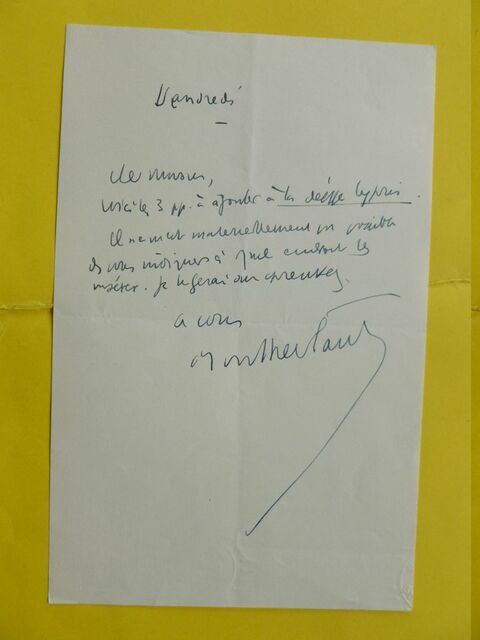 Vendredi
Cher Monsieur,
voici les 3 pp. à ajouter à la déesse Cypris.
Il ne m'est matériellement pas possible
de vous indiquer à quel endroit les
insérer. Je le ferai sur épreuves.
A vous
Montherlant